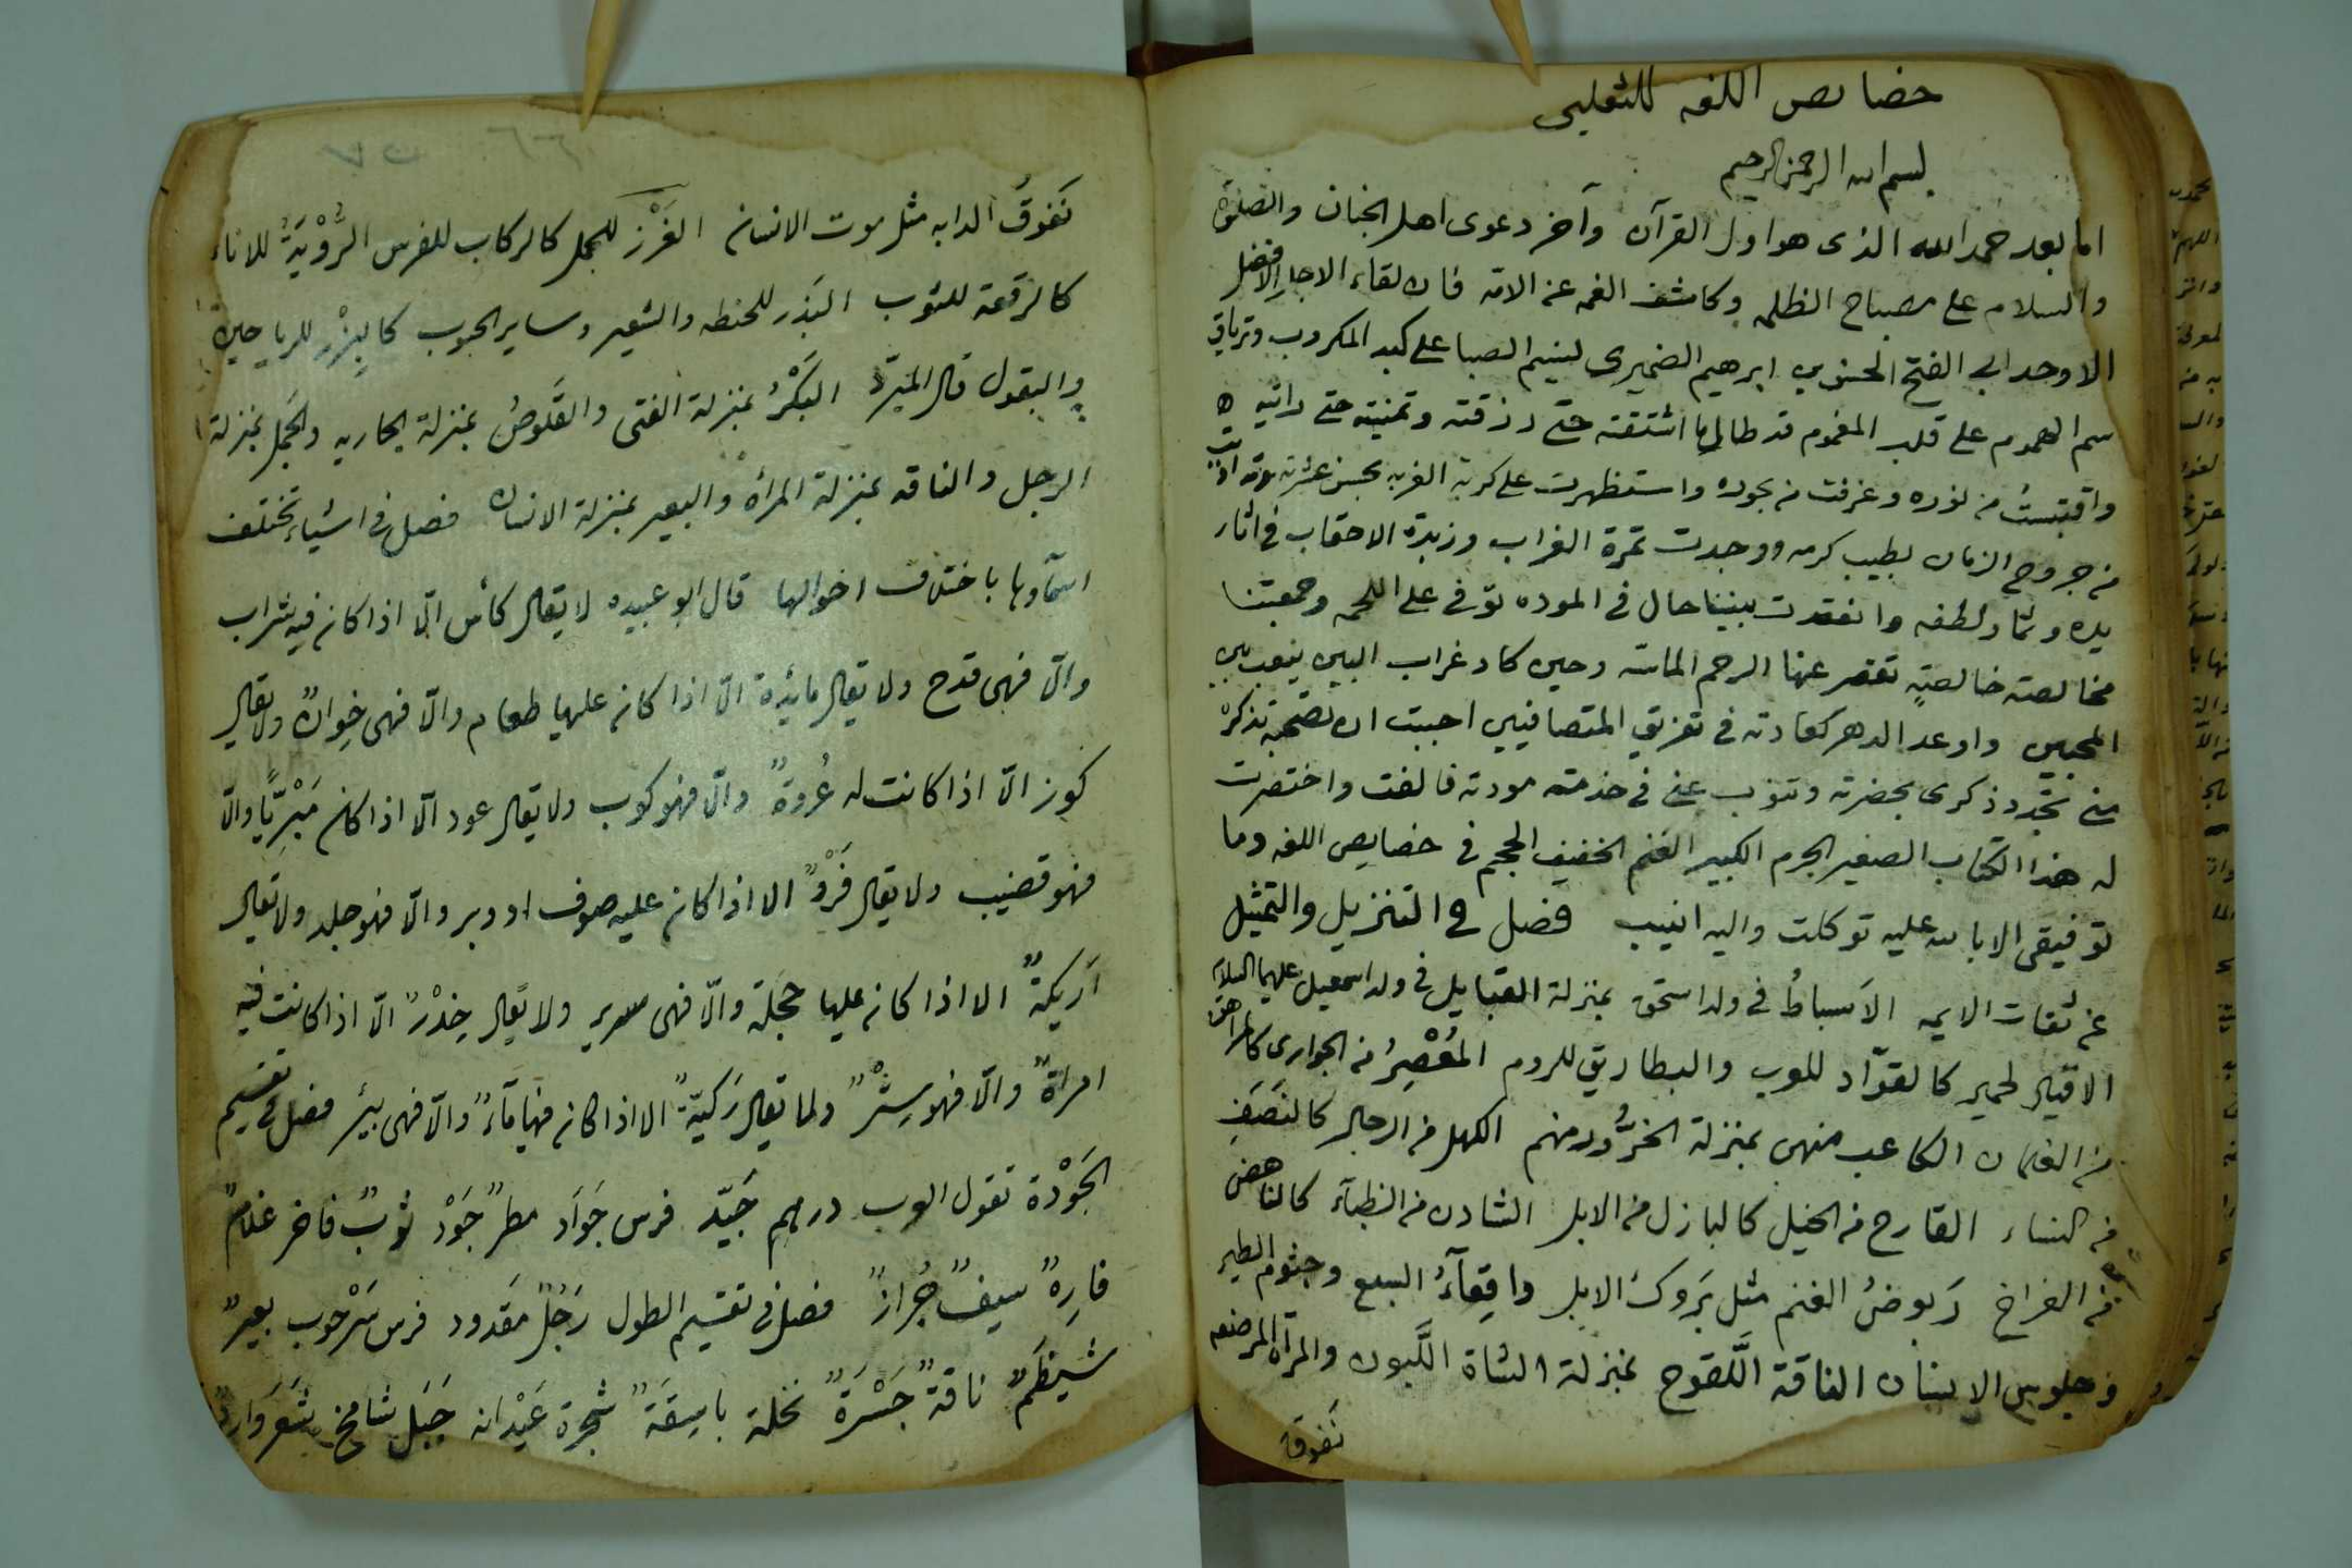 خصايص اللغه للثعلبى
بسم الله الرحمن الرحيم
اما بعد حمد الله الذى هو اول القرآن وآخر دعوى اهل الجنان والصلوة
والسلام على مصباح الظلمه وكاشف الغمه عن الامة فان لقاء الاجل الافضل
الاوحد ابى الفتح ابرهيم الضميرى لنسيم الصبا على كبد المكروب وترياق
سم الهموم على قلب المغموم قد طال ما اشتقته حتى رزقته وتمنيته حتى راتيه
واقتبست من نوره وغرفت من بحوره واستظهرت على كربة الغربه بحسن عشرته
من جروح الزمان بطيب كرمه ووجدت تمرة الغراب وزبدة الاحقاب فى اثار
يده وثمار لطفه وانعقدت بيننا حال فى الموده توفى على اللحمه وجمعتنا
مخالصته خالصتة تقصر عنها الرحم الماسة وحين كاد غراب البين ينعب بين
المحبين واوعد الدهر كعادته فى تفريق المتصافيين احببت ان تصحبه تذكرة
منى تجدد ذكرى بحضرته وتنوب عنى فى خدمته مودته فالفت واختصرت
له هذا الكتاب الصغير الجرم الكبير الغنم الخفيف الحجم فى خصايص اللغه وما
توفيقى الا بالله عليه توكلت واليه انيب فصل فى التنزيل والتمثيل
عن ثقات الايمه الاَسباطُ فى ولد اسحق بمنزلة القبايل فى ولد اسمعيل عليهما السلام
الاقيال لحمير كالقوّاد للعرب والبطاريق للروم المُعْصِرُ من الجوارى كالمراهق
من الغلمان الكاعب منهن بمنزلة الحزَوَّر منهم الكهل من الرجال كالنَصَفِ
من النساء القارح من الخيل كالبازل من الابل الشادن من الظبآء كالناهض
من الفراخ رَبوضُ الغنم مثل بَروكُ الابل واقِعآءُ السبع وجثوم الطير
وجلوس الانسان الناقة اللَّقوح بمنزلة الشاة اللَّبون والمرآة المرضعه
نَفوقُ
نَفوقُ الدابه مثل موت الانسان الغَرْز للجمل كالركاب للفرس الرُّوْبَةُ للاناء
كالرقعة للثوب البَذر للحنطه والشعير وساير الحبوب كالبِزْر للرياحين
والبقول قال المبَرّد البَكْرُ بمنزلة الفتى والقَلوصُ بمنزلة الجاريه والجمل بمنزلة
الرجل والناقه بمنزلة المرأة والبعير بمنزلة الانسان فصل فى اشياء تختلف
اسمآوها باختلاف احوالها قال ابو عبيده لا يقال كأس الّا اذا كان فيه شراب
والّا فهى قدح ولا يقال مائدة الّا اذا كان عليها طعام والّا فهى خِوانٌ ولا يقال
كوز الّا اذا كانت له عُروةٌ والّا فهو كوب ولا يقال عود الّا اذا كان مَبْريًّا والّا
فهو قضيب ولا يقال فَرْوٌ الا اذا كان عليه صوف او وبر والّا فهو جلد ولا يقال
اَريكةٌ الا اذا كان عليها حَجَلة والّا فهى سرير ولا يقال خِدْرٌ الّا اذا كانت فيه
امراةٌ والّا فهو سِتْرٌ ولا يقال رَكيَّةٌ الا اذا كان فيها مآءٌ والّا فهى بئر فصل فى تقسيم
الجَوْدة تقول العرب درهم جَيّد فرس جَوَاد مطرٌ جَوْد ثوبٌ فاخر غلامٌ
فارِهٌ سيفٌ جُرازٌ فصل فى تقسيم الطول رَجُلٌ مَقدود فرس سَرْحوب بعيرٌ
شَيظَمٌ ناقةٌ جَسْرَةٌ نخلة باسِقَةٌ شجرة عَيْدانه جَبَل شامخ شَعَر وَارِدٌ